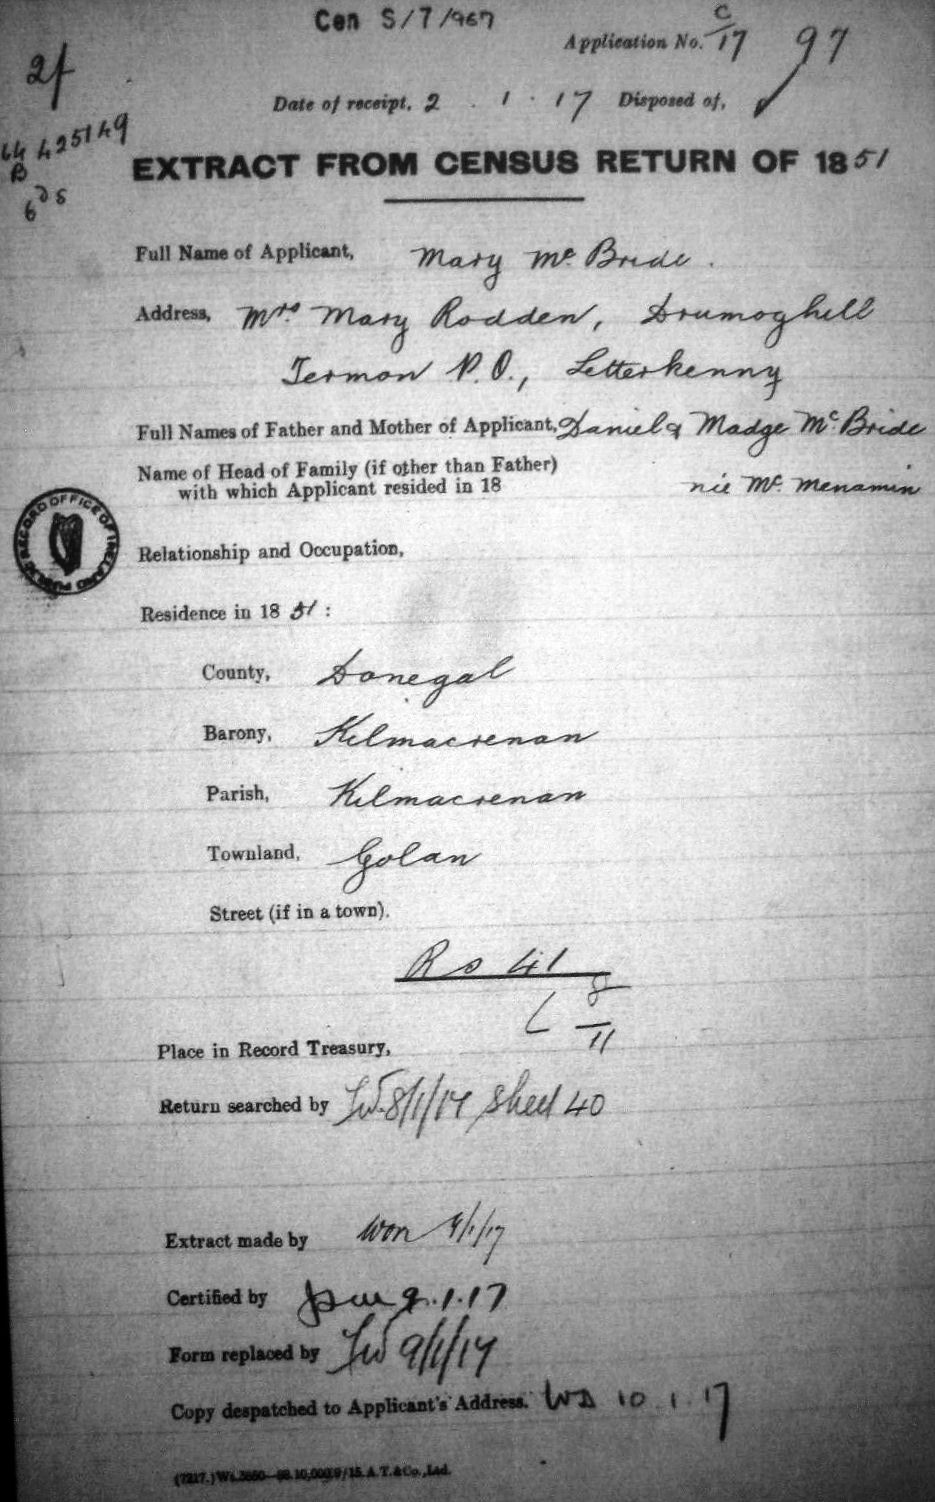 Cen S/7/967
Application No. C/17 97
2/-
Date of receipt, 2 . 1 . 17 Disposed of,
425149
EXTRACT FROM CENSUS RETURN OF 1851
Full Name of Applicant, Mary Mc Bride .
Address, Mrs. Mary Rodden, Drumoghill
Termon P.O., Letterkenny
Full Names of Father and Mother of Applicant, Daniel & Madge Mc Bride
Name of Head of Family (if other than Father)
with which Applicant resided in 18 nie Mc Menamin
PUBLIC RECORD OFFICE OF IRELAND
Relationship and Occupation,
Residence in 1851 :
County, Donegal
Barony, Kilmacrenan
Parish, Kilmacrenan
Townland, Golan
Street (if in a town),
Rs 41
8
11
Place in Record Treasury,
Return searched by 8/1/17 Sheet 40
Extract made by 9/1/17
Certified by 9.1.17
Form replaced by 9/1/17
Copy despatched to Applicant's Address. WD 10.1.17
(7217.)Wt.3660—98.10,000.9/15.A.T.&Co.,Ltd.